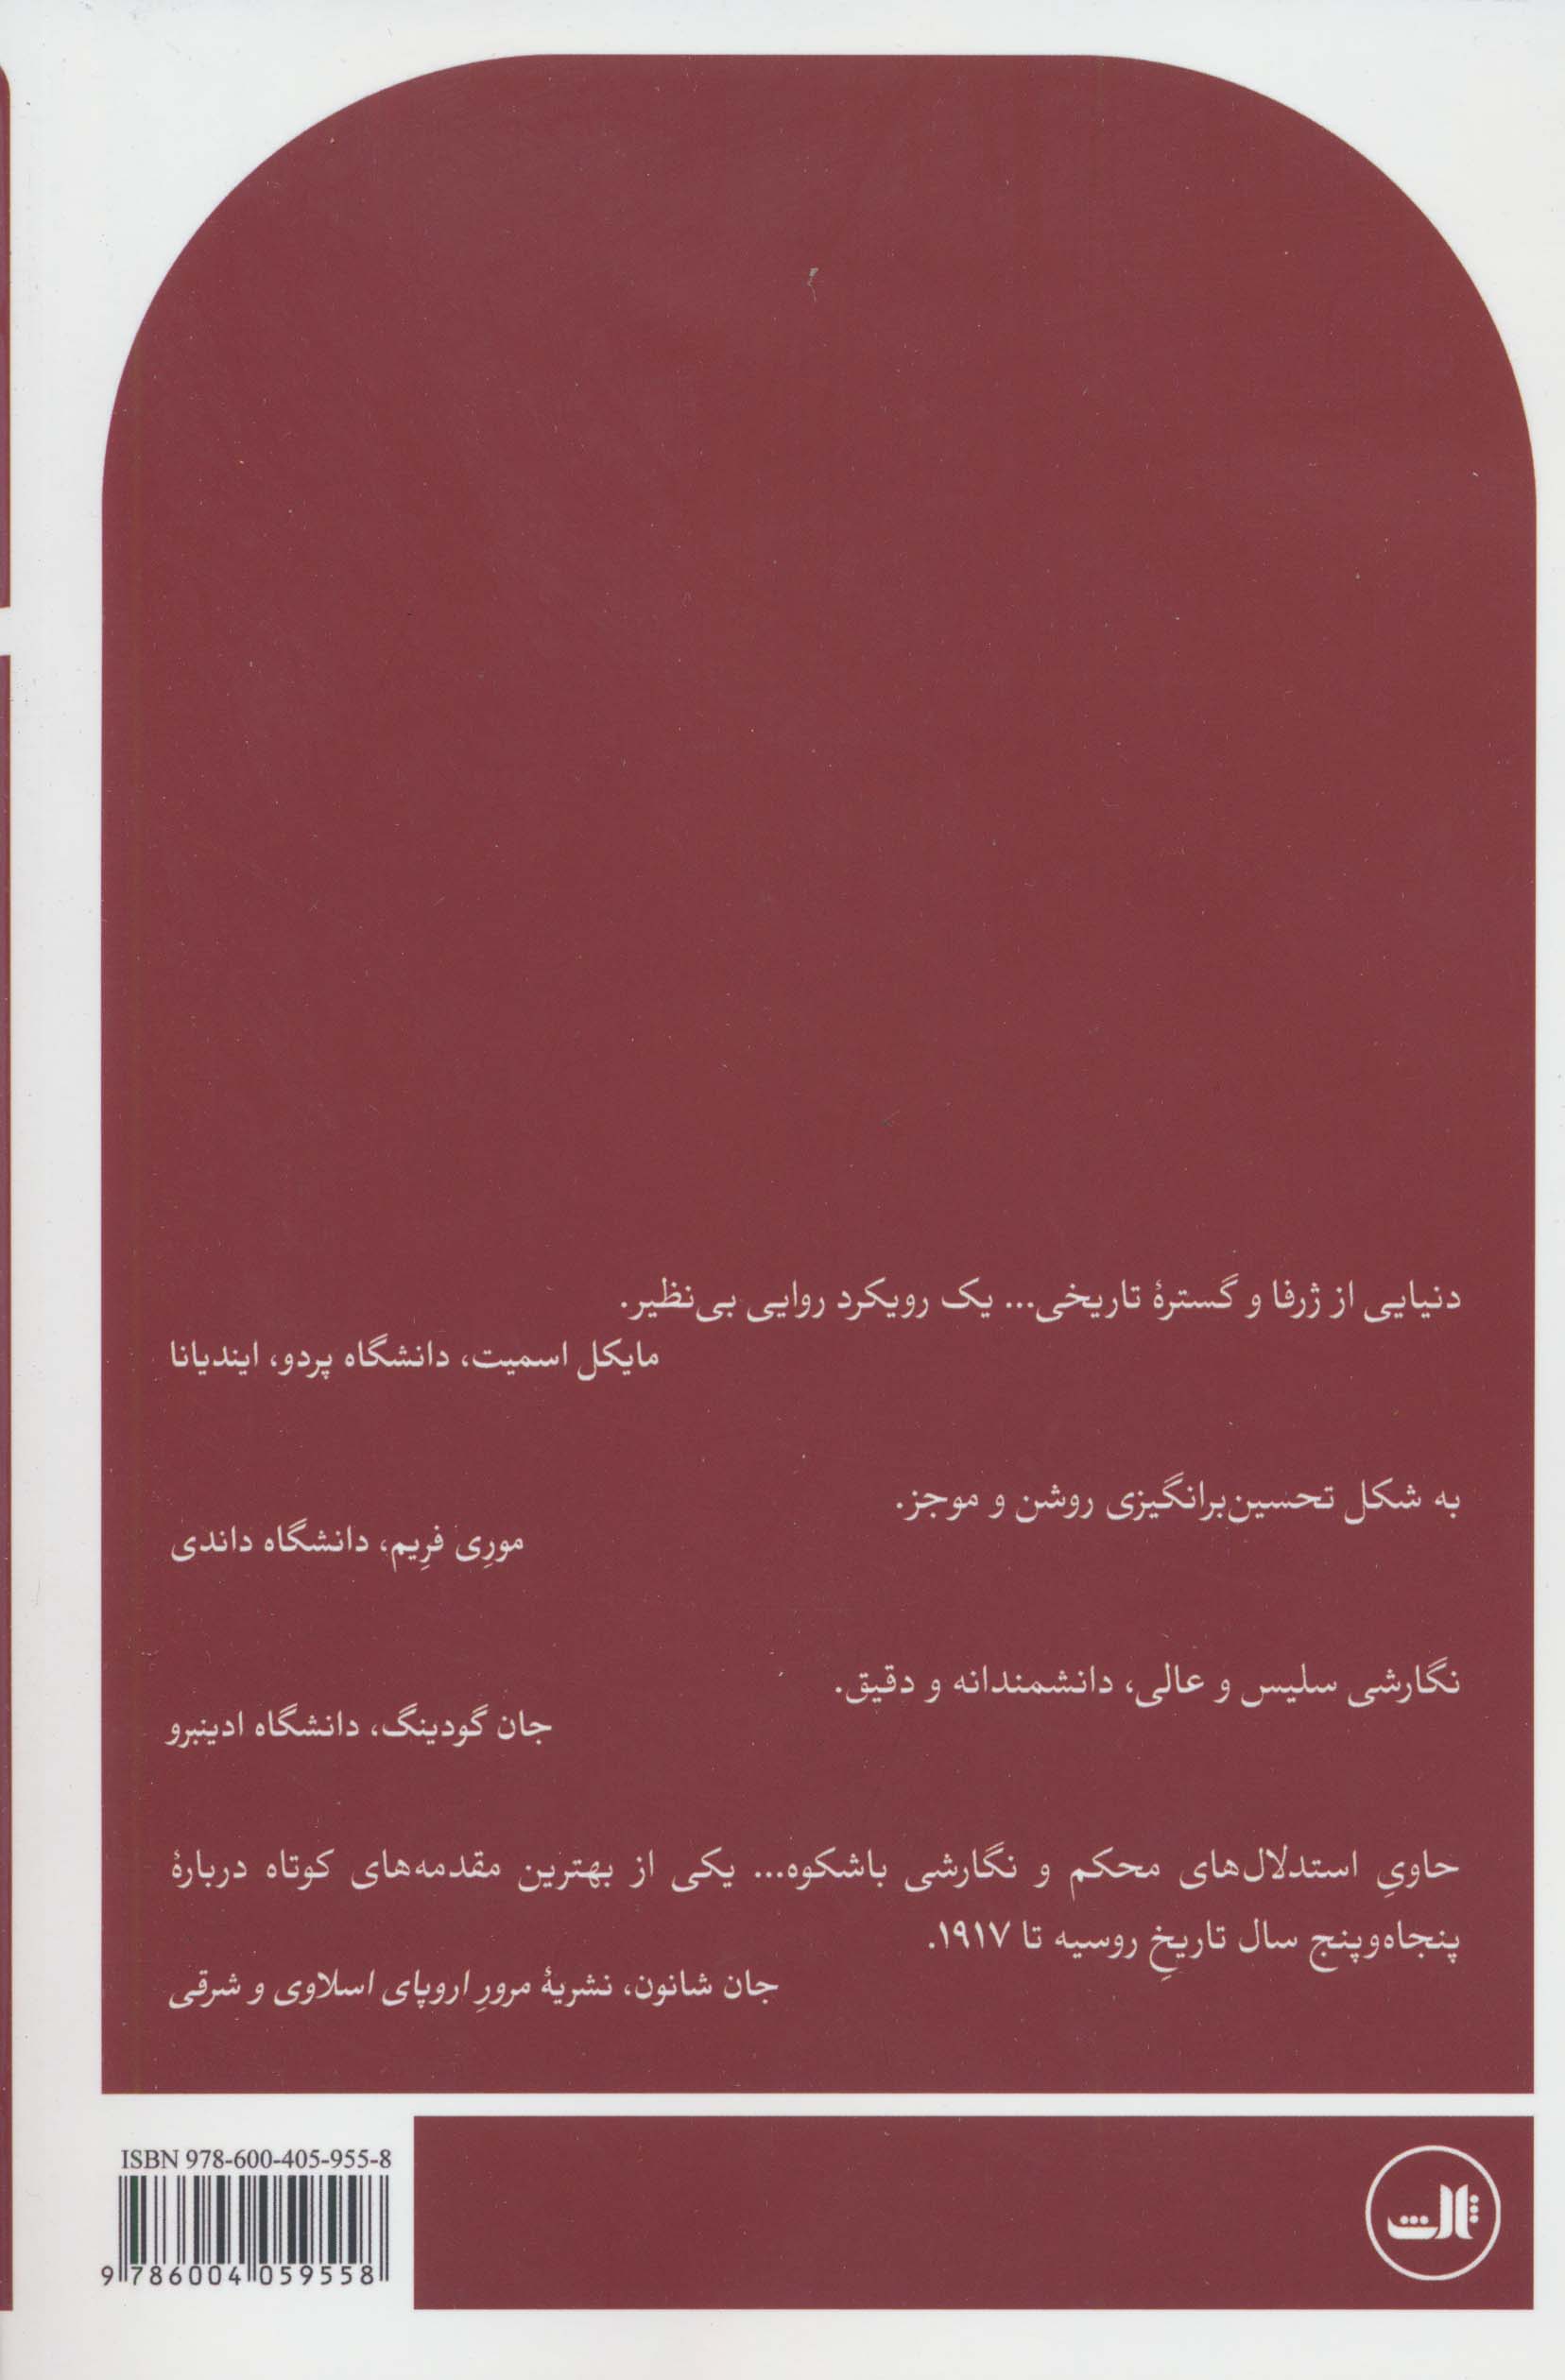 دنیایی از ژرفا و گسترهٔ تاریخی... یک رویکرد روایی بی‌نظیر.
مایکل اسمیت، دانشگاه پردو، ایندیانا
به شکل تحسین‌برانگیزی روشن و موجز.
موریِ فرِیم، دانشگاه داندی
نگارشی سلیس و عالی، دانشمندانه و دقیق.
جان گودینگ، دانشگاه ادینبرو
حاویِ استدلال‌های محکم و نگارشی باشکوه... یکی از بهترین مقدمه‌های کوتاه دربارهٔ
پنجاه‌وپنج سال تاریخِ روسیه تا ۱۹۱۷.
جان شانون، نشریهٔ مرورِ اروپای اسلاوی و شرقی
ISBN 978-600-405-955-8
9 786004 059558
ثالث